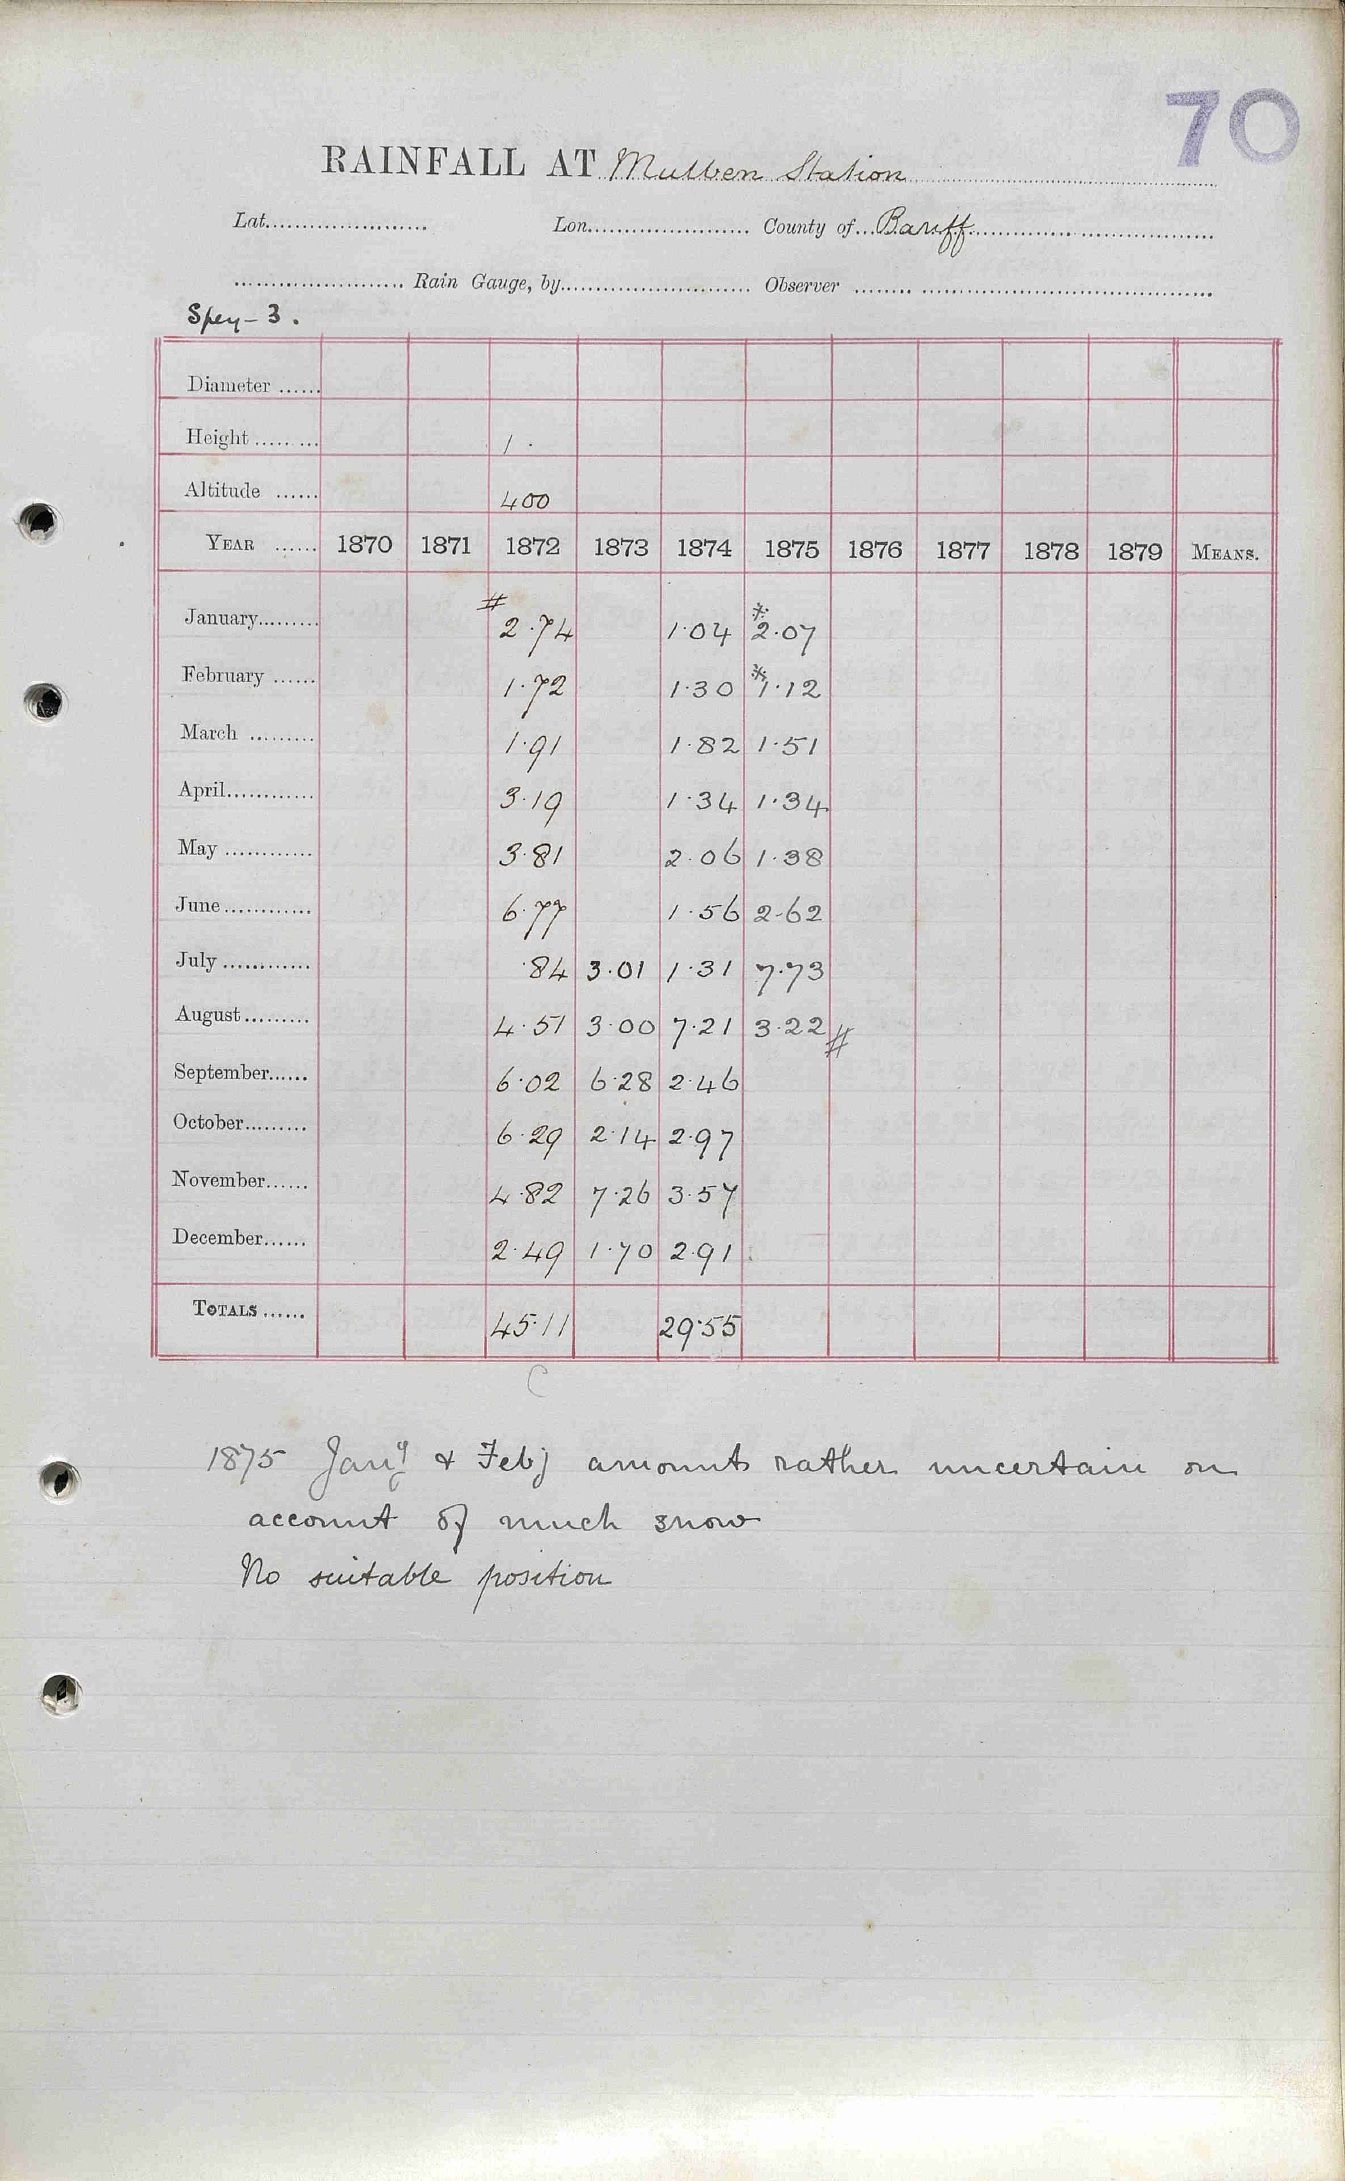 70
RAINFALL AT Mulben Station
Lat...................... Lon...................... County of... Banff
...................... Rain Gauge, by...................... Observer ......................
Spey - 3.
Diameter ......
Height ......... 1 .
Altitude ...... 400
YEAR ...... 1870 1871 1872 1873 1874 1875 1876 1877 1878 1879 MEANS.
January......... # 2.74 1.04 * 2.07
February ...... 1.72 1.30 * 1.12
March ......... 1.91 1.82 1.51
April............ 3.19 1.34 1.34
May ............ 3.81 2.06 1.38
June............ 6.77 1.56 2.62
July ............ .84 3.01 1.31 7.73
August......... 4.51 3.00 7.21 3.22 #
September...... 6.02 6.28 2.46
October......... 6.29 2.14 2.97
November...... 4.82 7.26 3.57
December...... 2.49 1.70 2.91
TOTALS ...... 45.11 29.55
C
1875 Jany & Feby amounts rather uncertain on
account of much snow
No suitable position